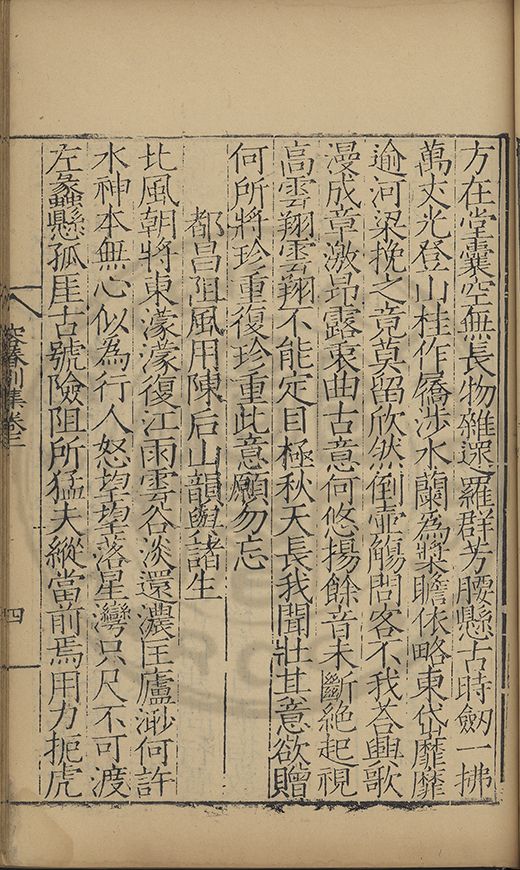 方在堂囊空無長物雜遝羅群芳腰懸古時劒一拂
萬丈光登山桂作屩涉水蘭為槳瞻依略東岱靡靡
逾河梁挽之竟莫留欣然倒壺觴問客不我荅興歌
漫成章激昂露衷曲古意何悠揚餘音未斷絶起視
高雲翔雲翔不能定目極秋天長我聞壯其意欲贈
何所將珍重復珍重此意願勿忘
都昌阻風用陳后山韻與諸生
北風朝將東濛濛復江雨雲谷淡還濃匡廬渺何許
水神本無心似為行人怒望望落星灣只尺不可渡
左蠡懸孤厓古號險阻所猛夫縱當前焉用力扼虎
集卷三
四